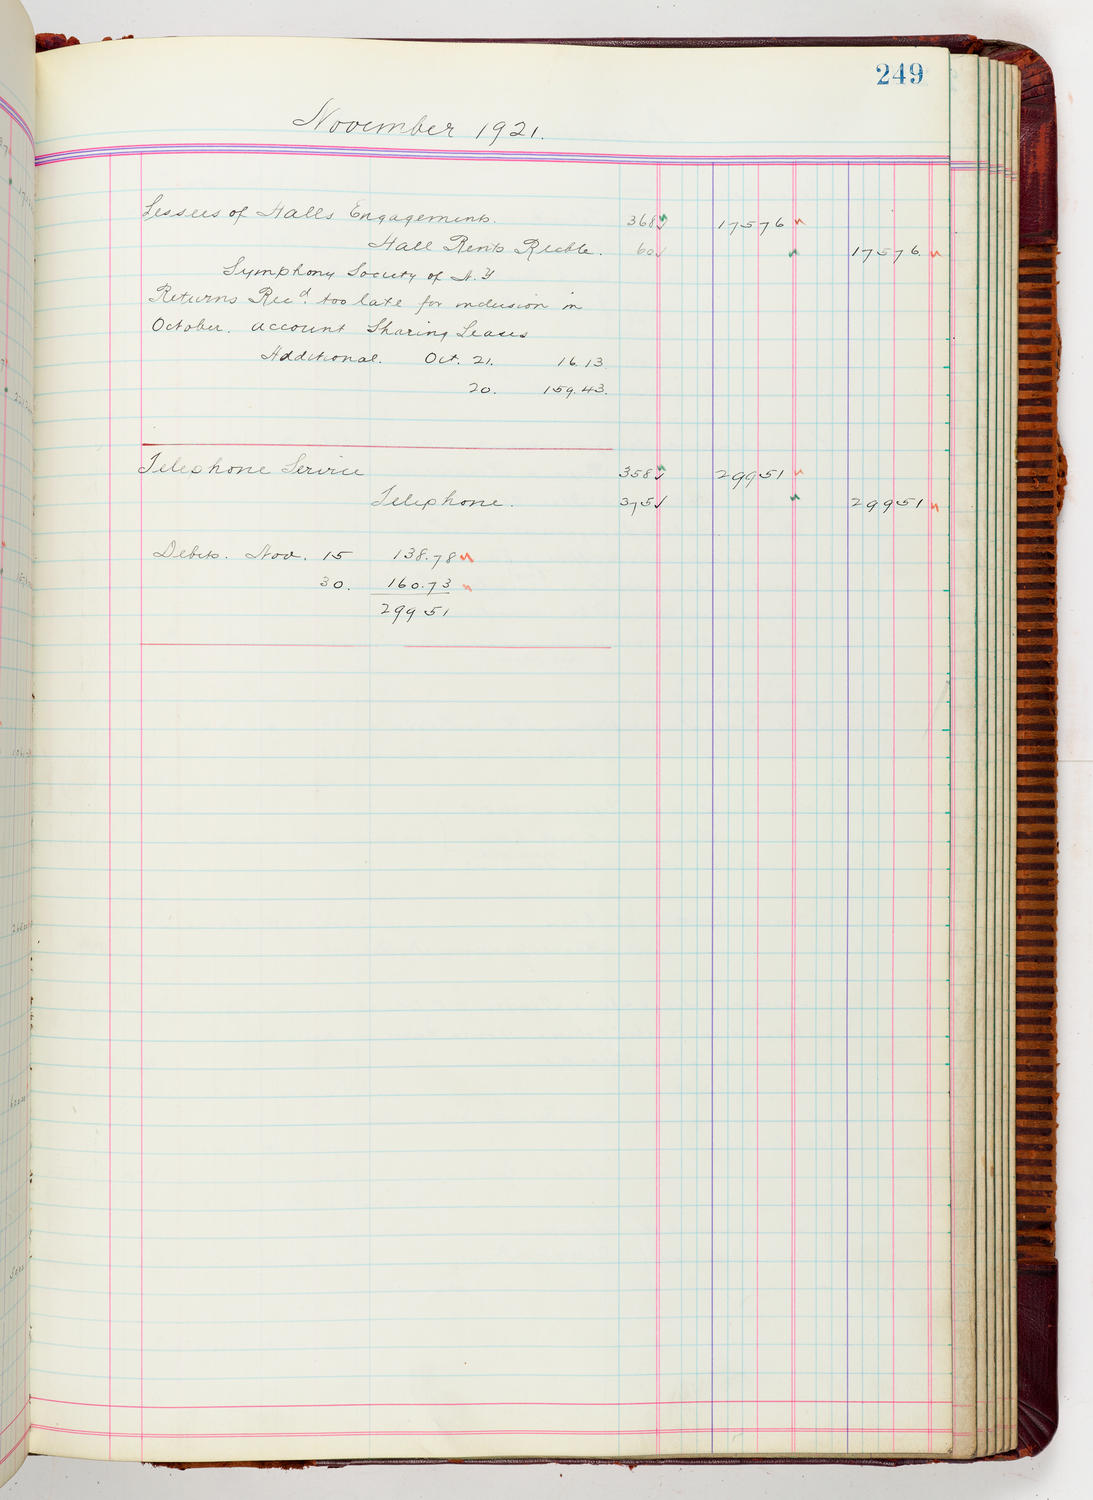 249
November 1921.
Lessees of Halls Engagements. 368 175 76
Hall Rents Rlcble. 60 175 76
Symphony Society of N.Y
Returns Rec'd. too late for inclusion in
October. account Sharing Leases
Additional. Oct. 21. 16.13.
20. 159.43.
Telephone Service 358 299 51
Telephone. 375 299 51
Debits. Nov. 15 138.78
30. 160.73
299 51